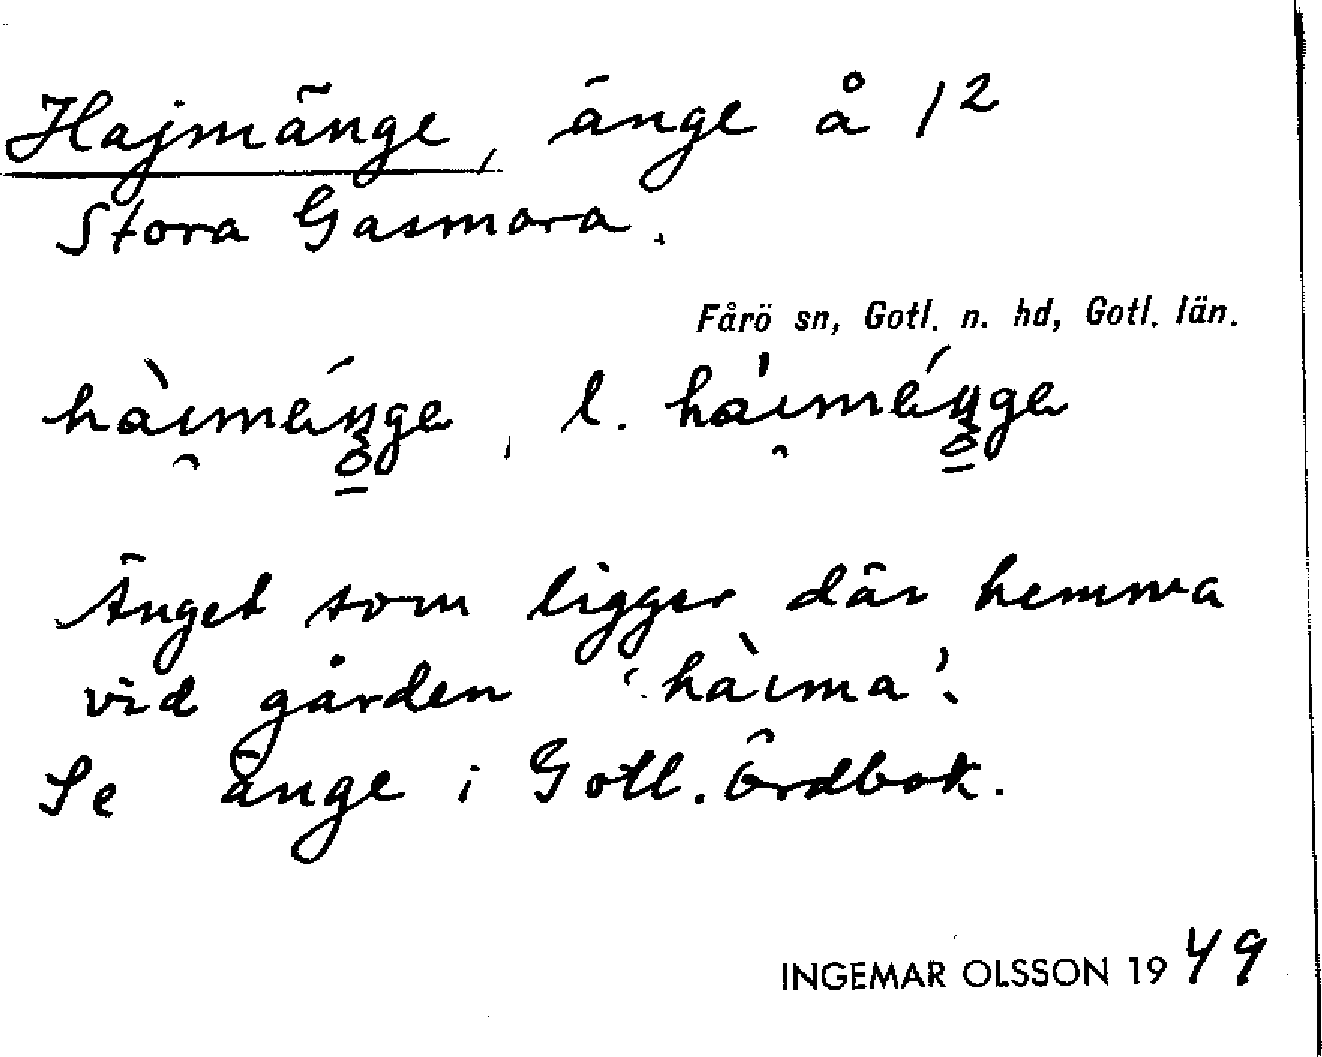 Hajmänge, änge å 1²
Stora Gasmora.
Fårö sn, Gotl. n. hd, Gotl. län.
hàımeŋ́ge, l. há̍ımeŋ́ge
Änget som ligger där hemma
vid gården 'hàıma'.
Se änge i Gotl. Ordbok.
INGEMAR OLSSON 1949